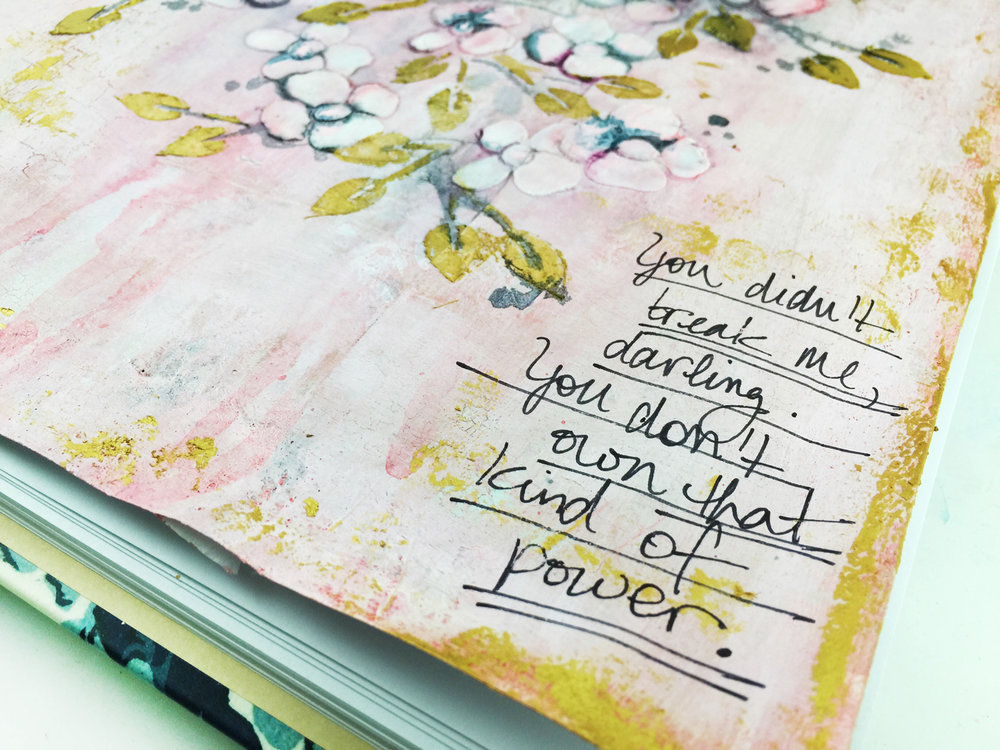 You didn't
break me,
darling.
You don't
own that
kind of
power.